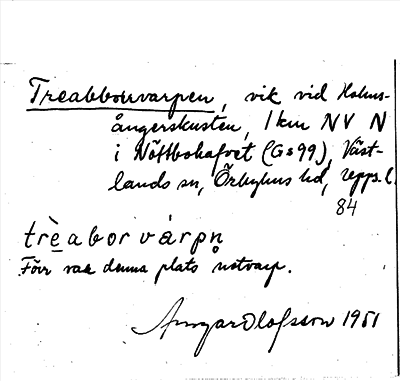 Treabborvarpen, vik vid Holms-
ångerskusten, 1 km NV N
i Nöttbohafvet (Gs 99), Väst-
lands sn, Örbyhus hd, Upps. l.
84
trèabor várpn̥
Förr var denna plats notvarp.
Ansgar Olofsson 1951